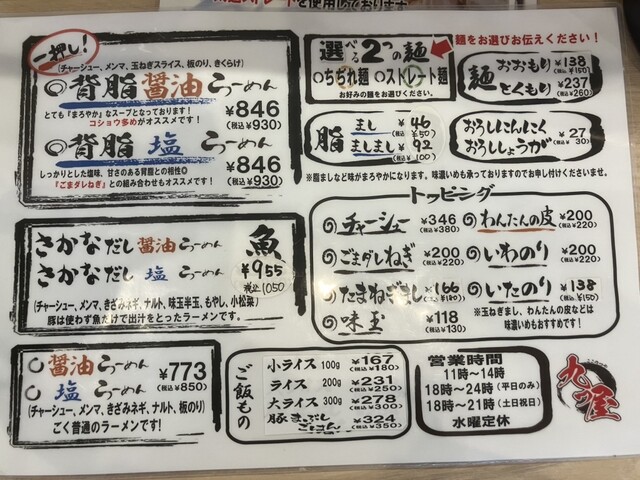 一押し!
(チャーシュー、メンマ、玉ねぎスライス、板のり、きくらげ)
背脂醤油らーめん
¥846
(税込¥930)
とても『まろやか』なスープとなっております!
コショウ多めがオススメです!
背脂塩らーめん
¥846
(税込¥930)
しっかりとした塩味、甘さのある背脂との相性◎
『ごまダレねぎ』との組み合わせもオススメです!
選べる2つの麺
○ちぢれ麺 ○ストレート麺
お好みの麺をお選びください。
麺をお選びお伝えください!
麺 おおもり ¥138
(税込¥150)
とくもり ¥237
(税込¥260)
脂 まし ¥46
(税込¥50)
ましまし ¥92
(税込¥100)
おろしにんにく
おろししょうが
¥27
(税込¥30)
※脂ましなど味がまろやかになります。味濃いめも承っておりますのでお申し付けくださいませ。
さかなだし醤油らーめん
さかなだし塩らーめん
魚
¥955
税込1050
(チャーシュー、メンマ、きざみネギ、ナルト、味玉半玉、もやし、小松菜)
豚は使わず魚だけで出汁をとったラーメンです。
トッピング
チャーシュー ¥346
(税込¥380)
ごまダレねぎ ¥200
(税込¥220)
たまねぎまし ¥166
(税込¥180)
味玉 ¥118
(税込¥130)
わんたんの皮 ¥200
(税込¥220)
いわのり ¥200
(税込¥220)
いたのり ¥138
(税込¥150)
※玉ねぎまし、わんたんの皮などは
味濃いめもおすすめです!
醤油らーめん
塩らーめん
¥773
(税込¥850)
(チャーシュー、メンマ、きざみネギ、ナルト、板のり)
ごく普通のラーメンです!
ご飯もの
小ライス 100g ¥167
(税込¥180)
ライス 200g ¥231
(税込¥250)
大ライス 300g ¥278
(税込¥300)
豚まぶしごはん ¥324
(税込¥350)
営業時間
11時〜14時
18時〜24時(平日のみ)
18時〜21時(土日祝日)
水曜定休